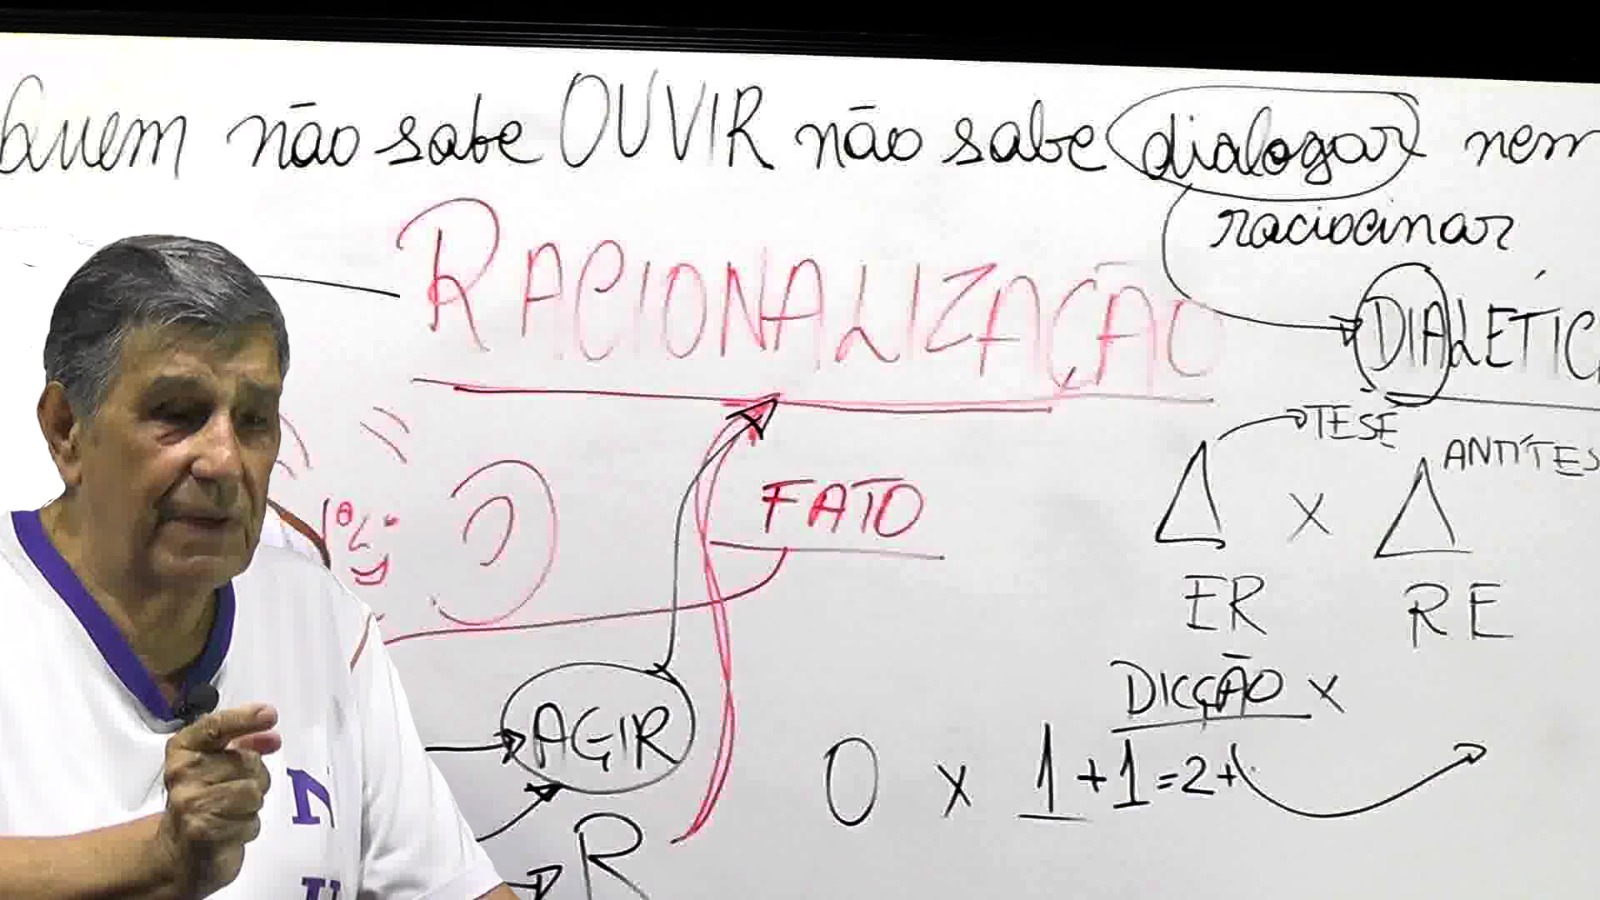 Quem não sabe OUVIR não sabe dialogar nem
raciocinar
RACIONALIZAÇÃO
DIALÉTIC
TESE
ANTÍTES
FATO
Δ x Δ
ER RE
DICÇÃO x
AGIR
0 x 1+1=2+
R
N